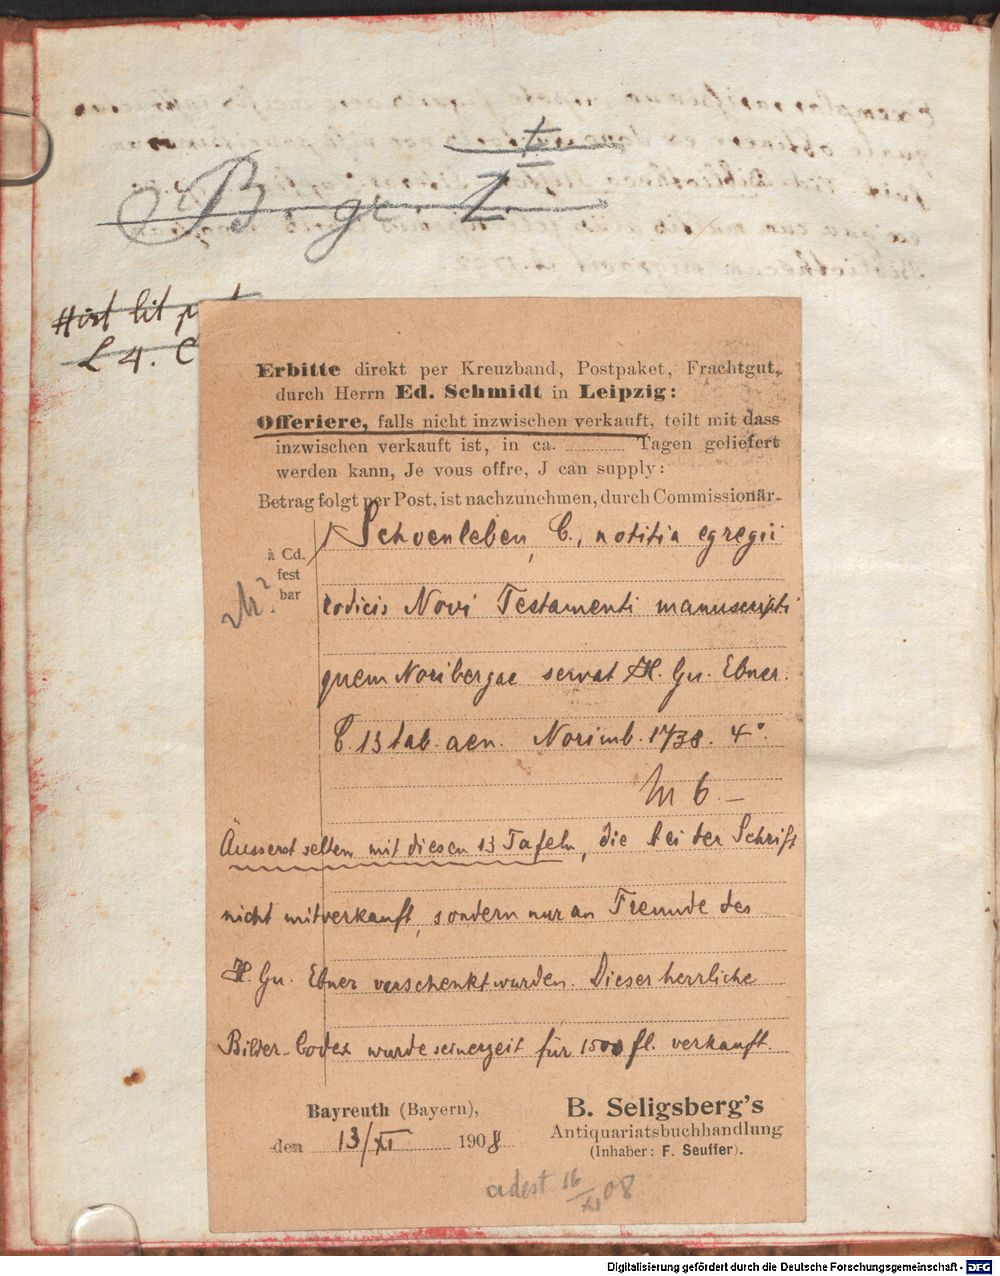 B. gr. I.
Hist lit p
L 4. C
Erbitte direkt per Kreuzband, Postpaket, Frachtgut,
durch Herrn Ed. Schmidt in Leipzig:
Offeriere, falls nicht inzwischen verkauft, teilt mit dass
inzwischen verkauft ist, in ca. ............ Tagen geliefert
werden kann, Je vous offre, J can supply:
Betrag folgt per Post, ist nachzunehmen, durch Commissionär.
à Cd.
fest
bar
Schoenleben, C., notitia egregii
codicis Novi Testamenti manuscripti
quem Noribergae servat H. Gu. Ebner.
C. 13 tab. aen. Norimb. 1738. 4°.
M 6.—
Äusserst selten mit diesen 13 Tafeln, die bei der Schrift
nicht mitverkauft, sondern nur an Freunde des
H. Gu. Ebner verschenkt wurden. Dieser herrliche
Bilder-Codex wurde seinerzeit für 1500 fl. verkauft.
Bayreuth (Bayern),
den 13/XI 1908
B. Seligsberg's
Antiquariatsbuchhandlung
(Inhaber: F. Seuffer).
adest 16/XI 08
Digitalisierung gefördert durch die Deutsche Forschungsgemeinschaft - DFG